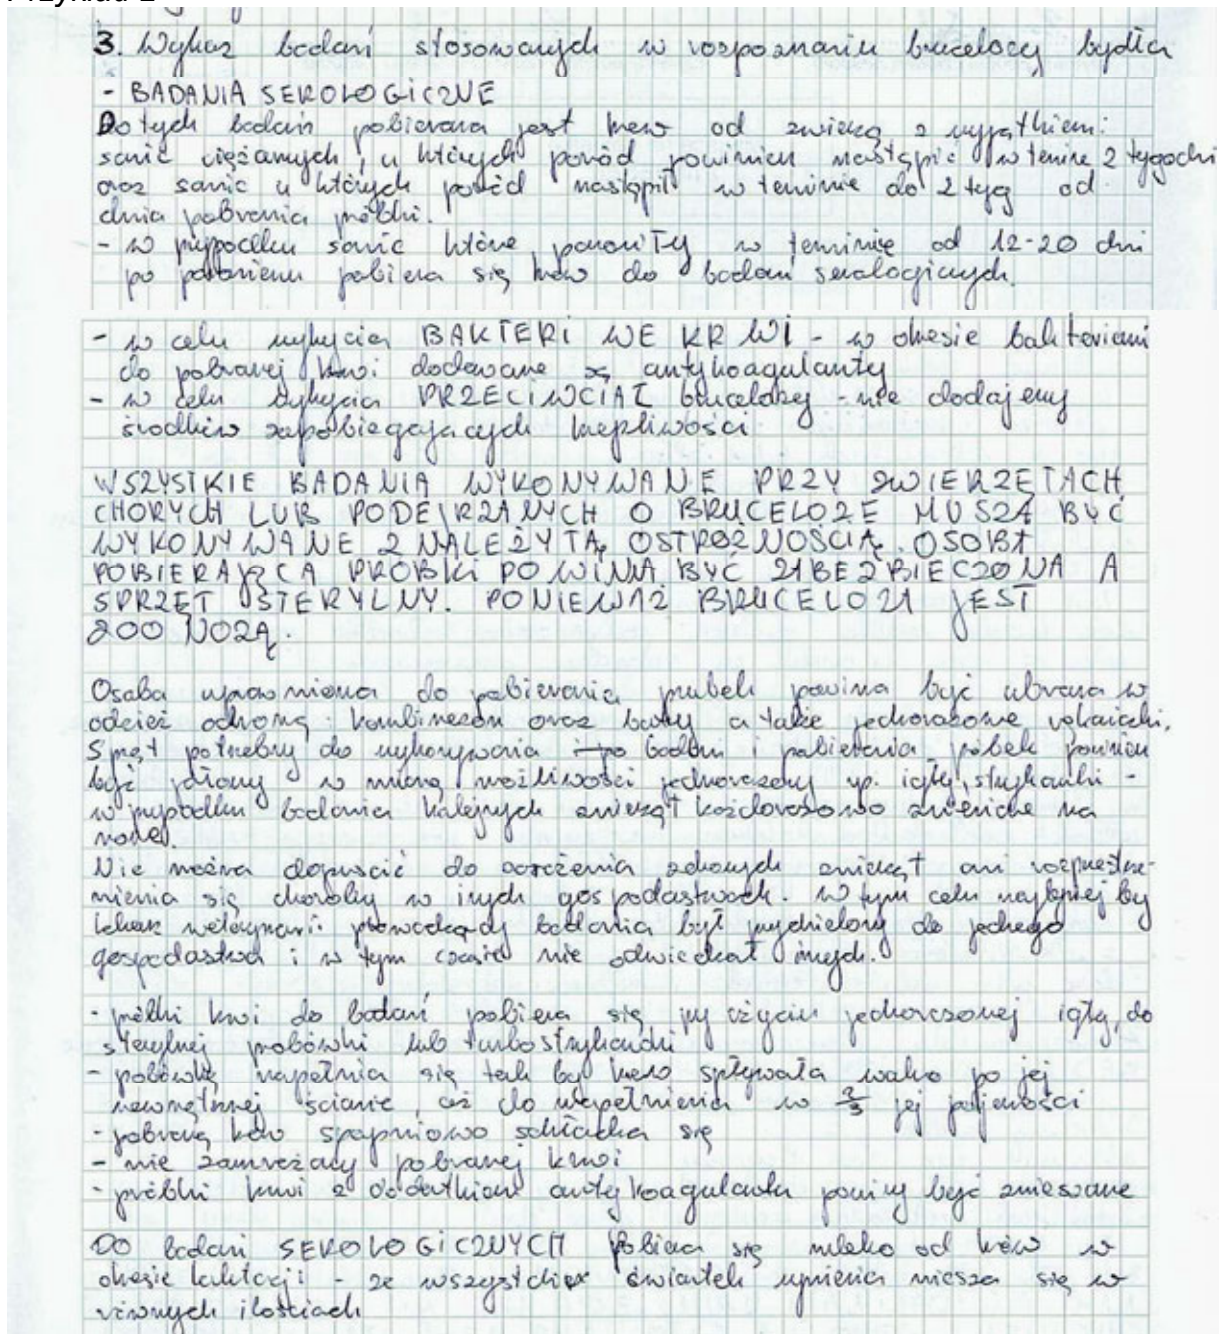 Przykład 2
3. Wykaz badań stosowanych w rozpoznaniu brucelozy bydła
- BADANIA SEROLOGICZNE
Do tych badań pobierana jest krew od zwierzą z wyjątkiem:
samic ciężarnych, u których poród powinien nastąpić w terminie 2 tygodni
oraz samic u których poród nastąpił w terminie do 2 tyg od
dnia pobrania próbki.
- w przypadku samic które poroniły w terminie od 12-20 dni
po poronieniu pobiera się krew do badań serologicznych.
- w celu wykrycia BAKTERI WE KRWI - w okresie bakteriemi
do pobranej krwi dodawane są antykoagulanty
- w celu wykrycia PRZECIWCIAŁ brucelozy - nie dodajemy
środków zapobiegających krzepliwości
WSZYSTKIE BADANIA WYKONYWANE PRZY ZWIERZĘTACH
CHORYCH LUB PODEJRZANYCH O BRUCELOZE MUSZĄ BYĆ
WYKONYWANE Z NALEŻYTĄ OSTROŻNOŚCIĄ. OSOBA
POBIERAJĄCA PRÓBKI POWINNA BYĆ ZABEZPIECZONA A
SPRZĘT STERYLNY. PONIEWAŻ BRUCELOZA JEST
ZOONOZĄ.
Osoba uprawniona do pobierania prubek powina być ubrana w
odzież ochroną; kombinezon oraz buty a także jednorazowe rękawiczki.
Sprzęt potrzebny do wykonywania badań i pobierania próbek powinien
być w miarę możliwości jednorazowy np. igły, strzykawki -
w przypadku badania kolejnych zwierząt każdorazowo zmieniane na
nowe.
Nie można dopuścić do zarżenia zdrowych zwierząt ani rozprzestrze-
nienia się choroby w inych gospodarstwach. W tym celu najlepiej by
lekarz weterynarii prowadzący badania był przydzielony do jednego
gospodarstwa i w tym czasie nie odwiedzał innych.
- próbki krwi do badań pobiera się przy użyciu jednorazowej igły, do
sterylnej probówki lub turbostrzykawki
- probówkę napełnia się tak by krew spływała wolno po jej
wewnętrznej ścianie, aż do napełnienia w 2/3 jej pojemości
- pobraną krew stopniowo schładza się
- nie zamrażamy pobranej krwi
- próbki krwi z dodatkiem antykoagulantu powiny być zmieszane
DO badań SEROLOGICZNYCH pobiera się mleko od krów w
okresie laktacji - ze wszystkich ćwiartek wymienia miesza się w
równych ilościach